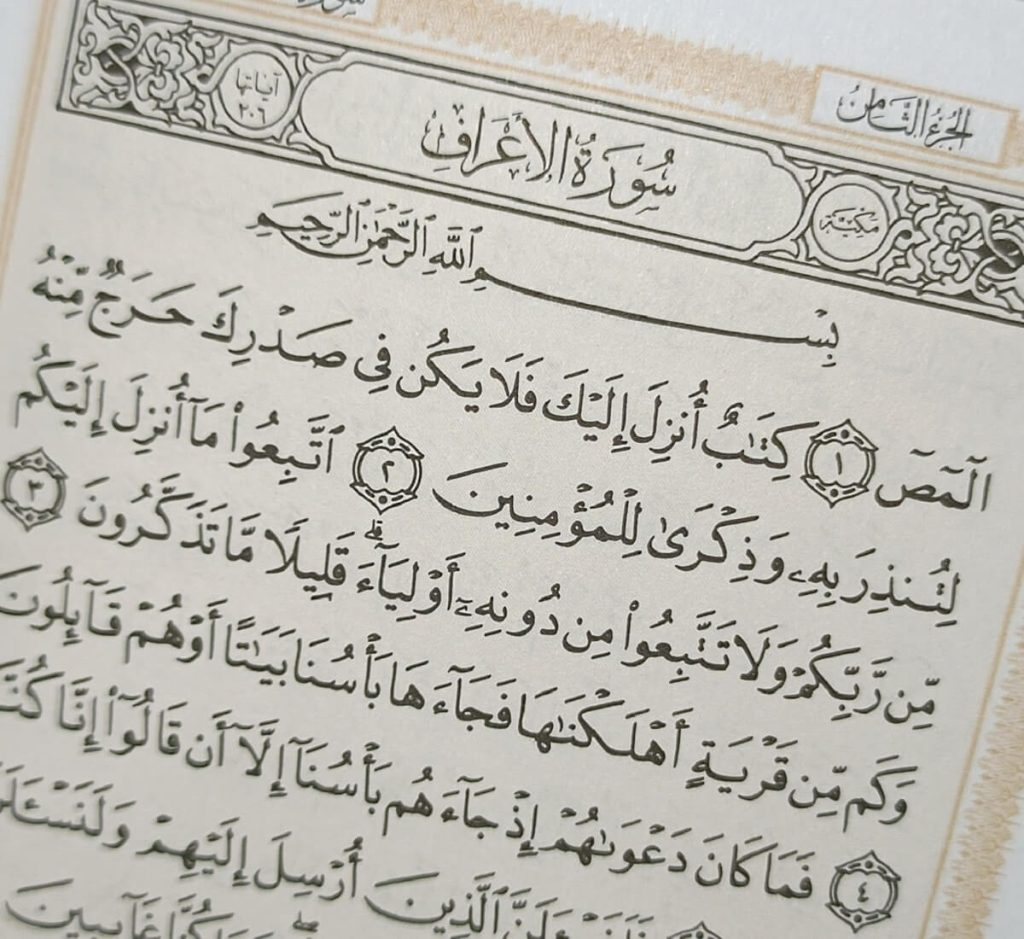 الجزء الثامن
سُورَةُ الأَعْرَافِ
مكيّة
آياتها ٢٠٦
بِسْمِ ٱللَّهِ ٱلرَّحْمَٰنِ ٱلرَّحِيمِ
الٓمٓصٓ ١ كِتَٰبٌ أُنزِلَ إِلَيْكَ فَلَا يَكُن فِى صَدْرِكَ حَرَجٌ مِّنْهُ
لِتُنذِرَ بِهِۦ وَذِكْرَىٰ لِلْمُؤْمِنِينَ ٢ ٱتَّبِعُوا۟ مَآ أُنزِلَ إِلَيْكُم
مِّن رَّبِّكُمْ وَلَا تَتَّبِعُوا۟ مِن دُونِهِۦٓ أَوْلِيَآءَ ۗ قَلِيلًا مَّا تَذَكَّرُونَ ٣
وَكَم مِّن قَرْيَةٍ أَهْلَكْنَٰهَا فَجَآءَهَا بَأْسُنَا بَيَٰتًا أَوْ هُمْ قَآئِلُونَ
٤ فَمَا كَانَ دَعْوَىٰهُمْ إِذْ جَآءَهُم بَأْسُنَآ إِلَّآ أَن قَالُوٓا۟ إِنَّا كُنَّا
ٱلَّذِينَ أُرْسِلَ إِلَيْهِمْ
غَآئِبِينَ